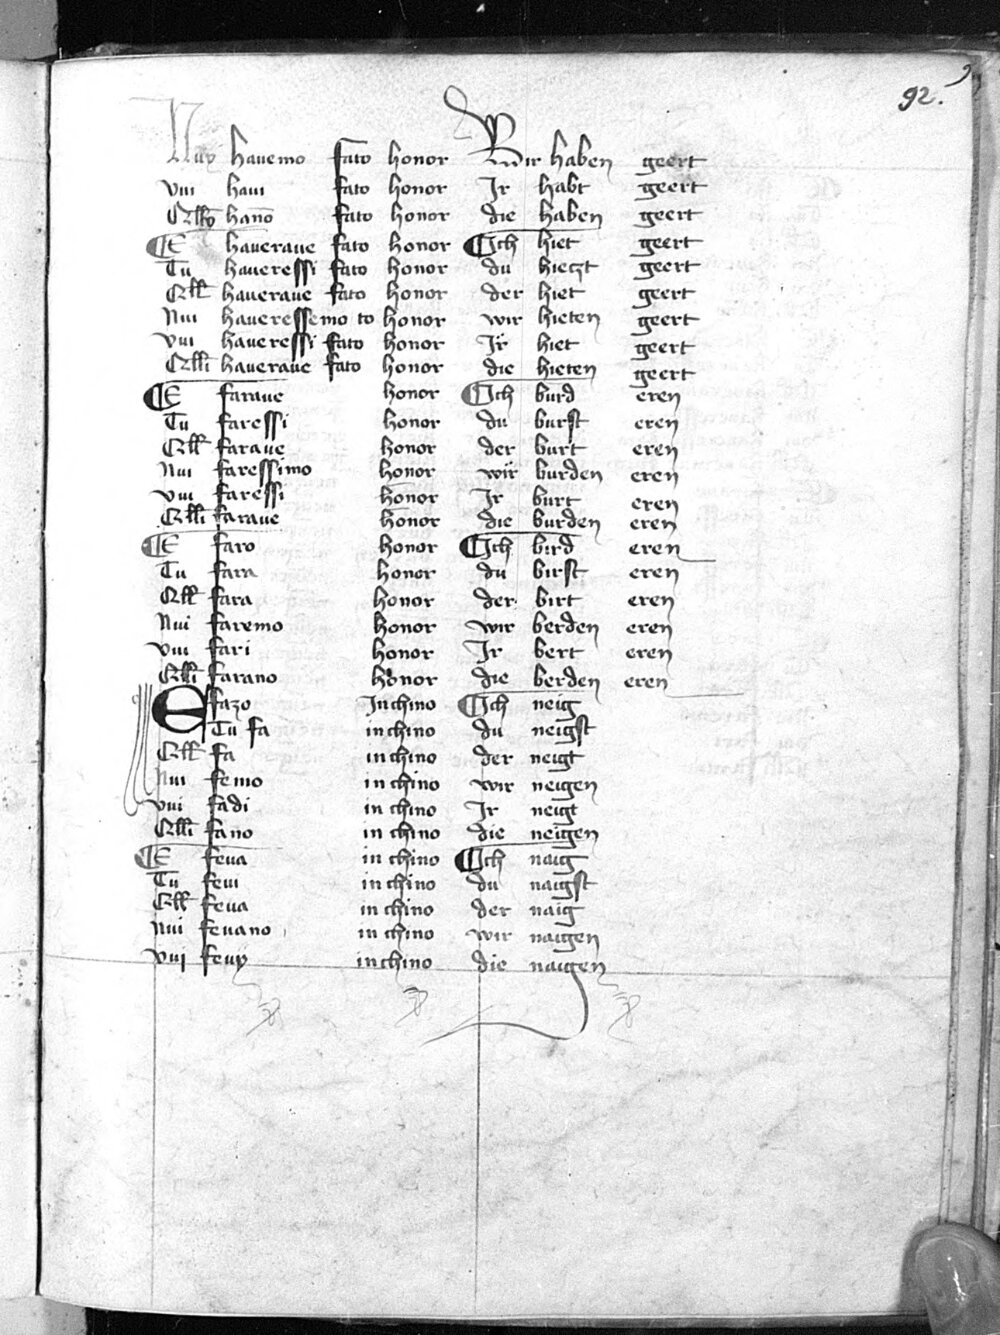 92.
Nuy hauemo fato honor Wir haben geert
Vui haui fato honor Ir habt geert
Elly hano fato honor die haben geert
E haueraue fato honor Ich hiet geert
Tu haueressi fato honor du hiečzt geert
Ell haueraue fato honor der hiet geert
Nui haueressemo to honor wir hieten geert
Vui haueressi fato honor Ir hiet geert
Elli haueraue fato honor die hieten geert
E faraue honor Ich burd eren
Tu faressi honor du burst eren
Ell faraue honor der burt eren
Nui faressimo honor wir burden eren
Vui faressi honor Ir burt eren
Elli faraue honor die burden eren
E faro honor Ich bird eren
Tu fara honor du birst eren
Ell fara honor der birt eren
Nui faremo honor wir berden eren
Vui fari honor Ir bert eren
Elli farano honor die berden eren
E fazo Inchino Ich neig
Tu fa inchino du neigst
Ell fa inchino der neigt
Nui femo inchino wir neigen
Vui fadi inchino Ir neigt
Elli fano inchino die neigen
E feua inchino Ich naig
Tu feui inchino du naigst
Ell feua inchino der naig
Nui feuano inchino wir naigen
Vui feuy inchino die naigen